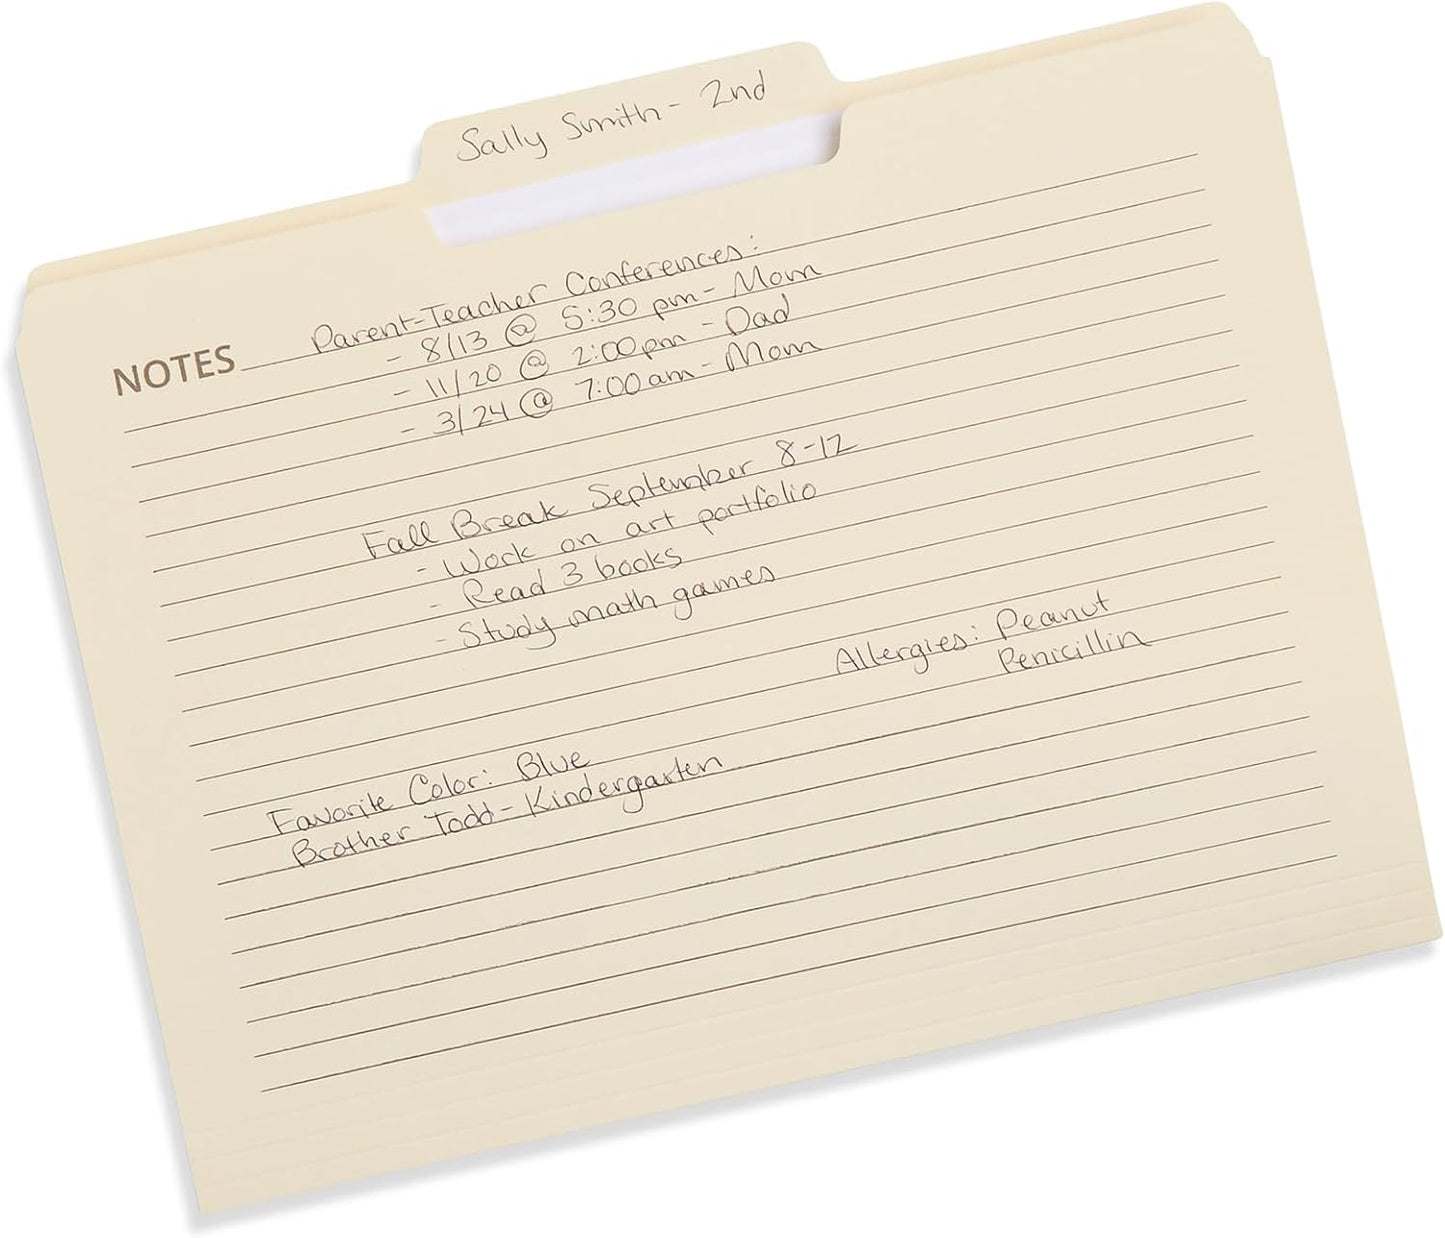 Sally Smith - 2nd
NOTES Parent-Teacher Conferences:
- 8/13 @ 5:30 pm - Mom
- 11/20 @ 2:00pm - Dad
- 3/24 @ 7:00am - Mom
Fall Break September 8-12
- Work on art portfolio
- Read 3 books
- Study math games
Allergies: Peanut
Penicillin
Favorite Color: Blue
Brother Todd - Kindergarten